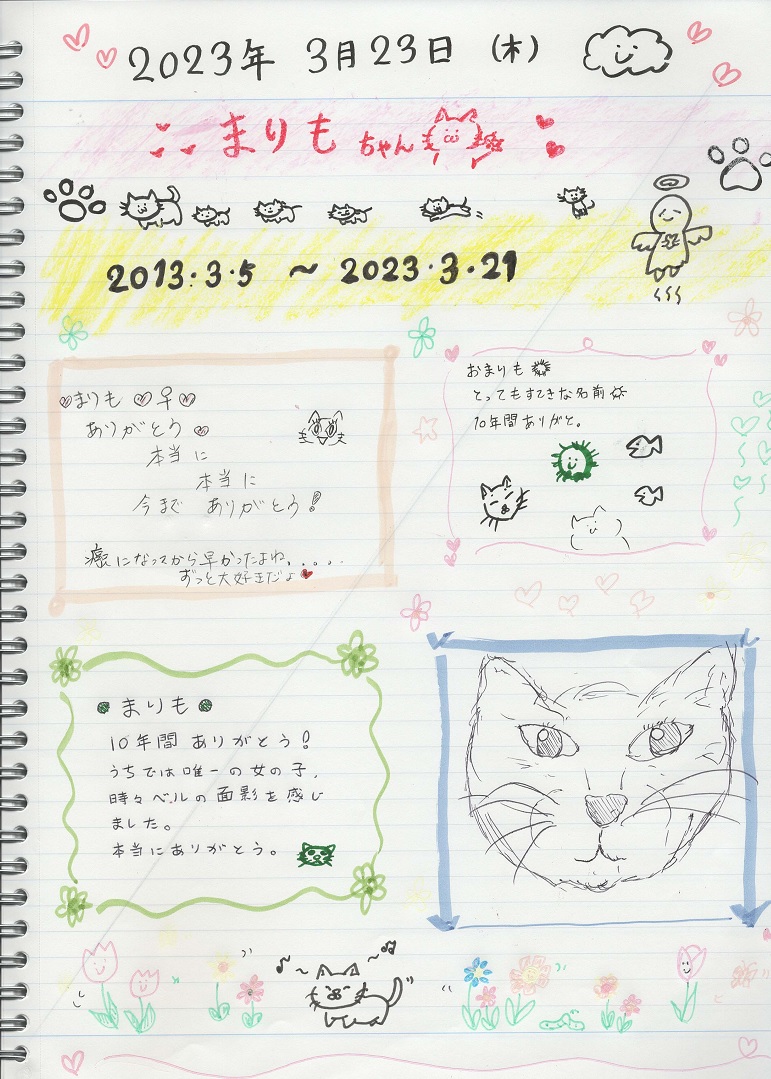 2023年 3月23日 (木)
まりもちゃん
2013.3.5 ～ 2023.3.21
まりも 早
ありがとう
本当に
本当に
今まで ありがとう!
癌になってから早かったよね.....
ずっと大好きだよ
おまりも
とってもすてきな名前
10年間ありがと。
まりも
10年間 ありがとう!
うちでは唯一の女の子、
時々ベルの面影を感じ
ました。
本当にありがとう。